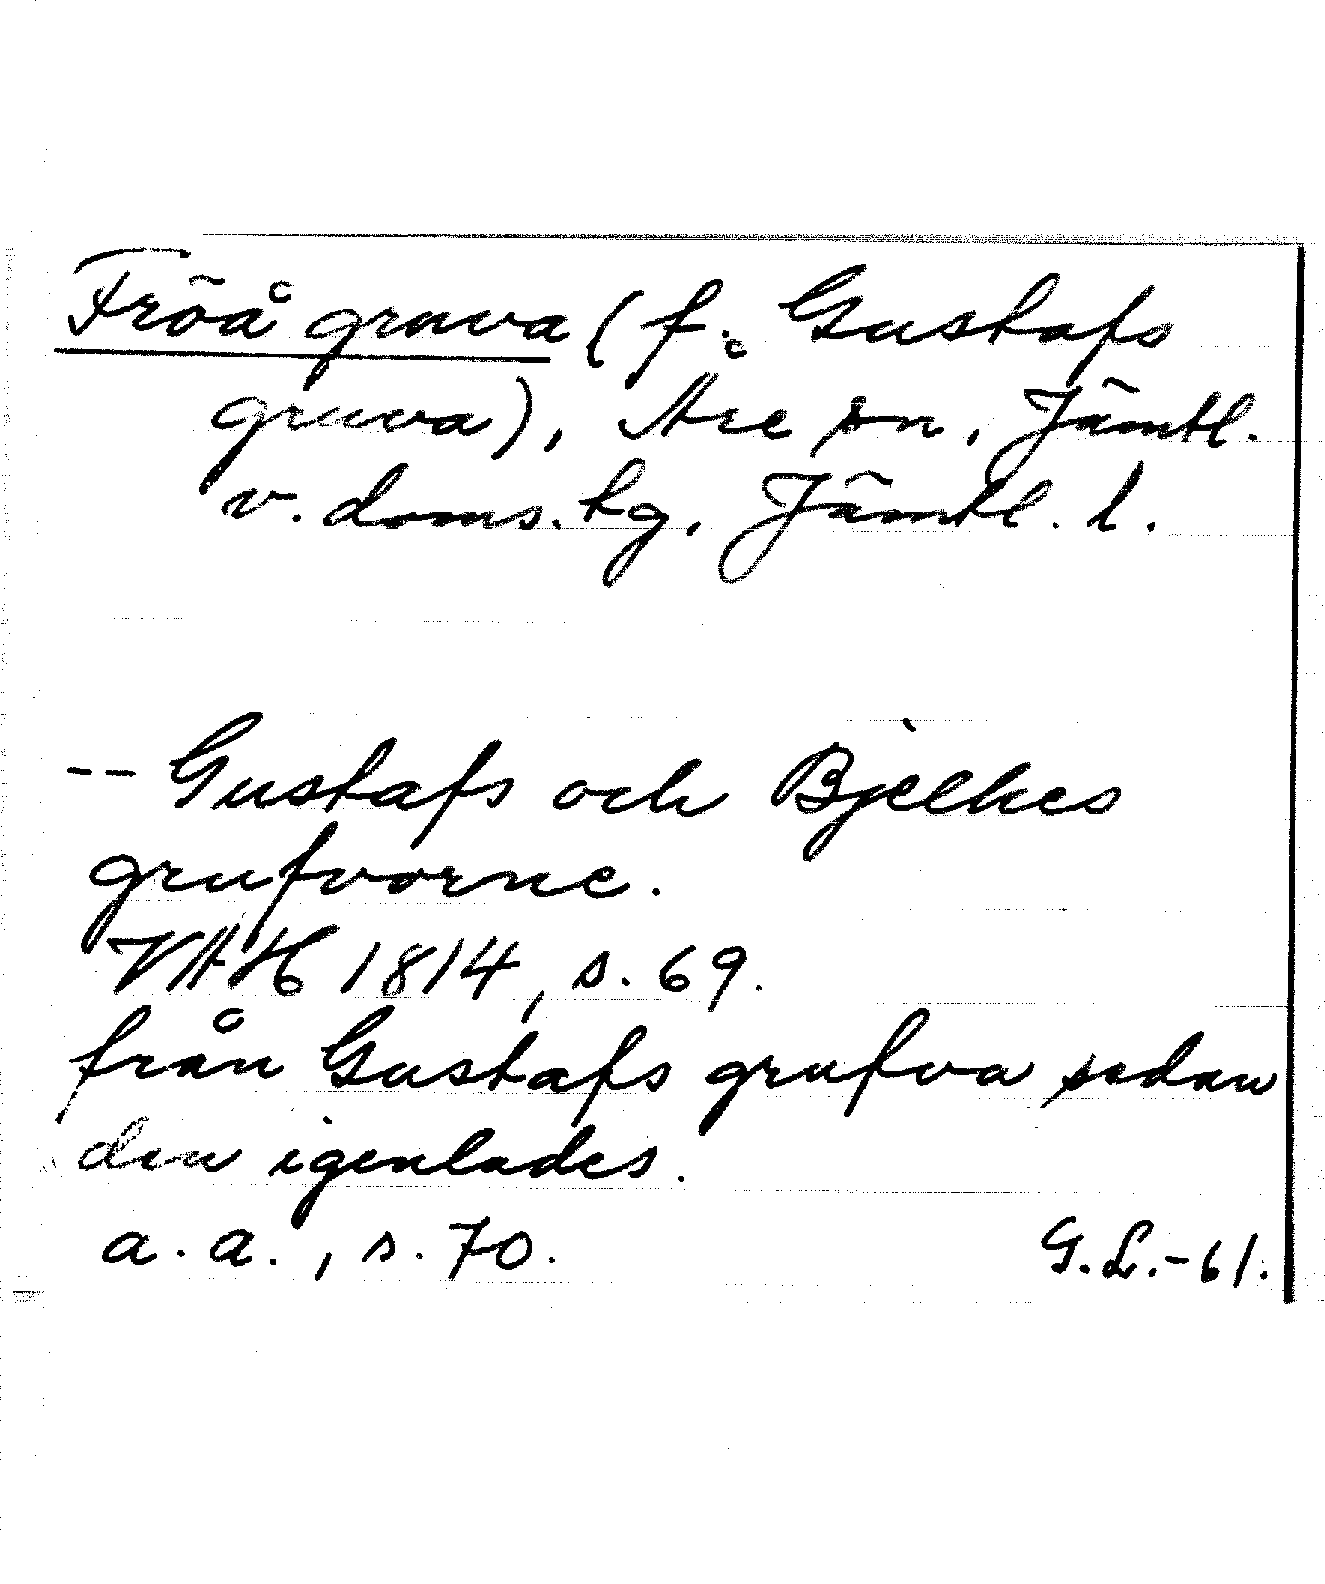 Fröå gruva (f. Gustafs
gruva), Åre sn, Jämtl.
v. doms. tg, Jämtl. l.
-- Gustafs och Bjelkes
grufvorne.
VAH 1814, s. 69.
från Gustafs grufva sedan
den igenlades.
a. a., s. 70.
G.L.-61.